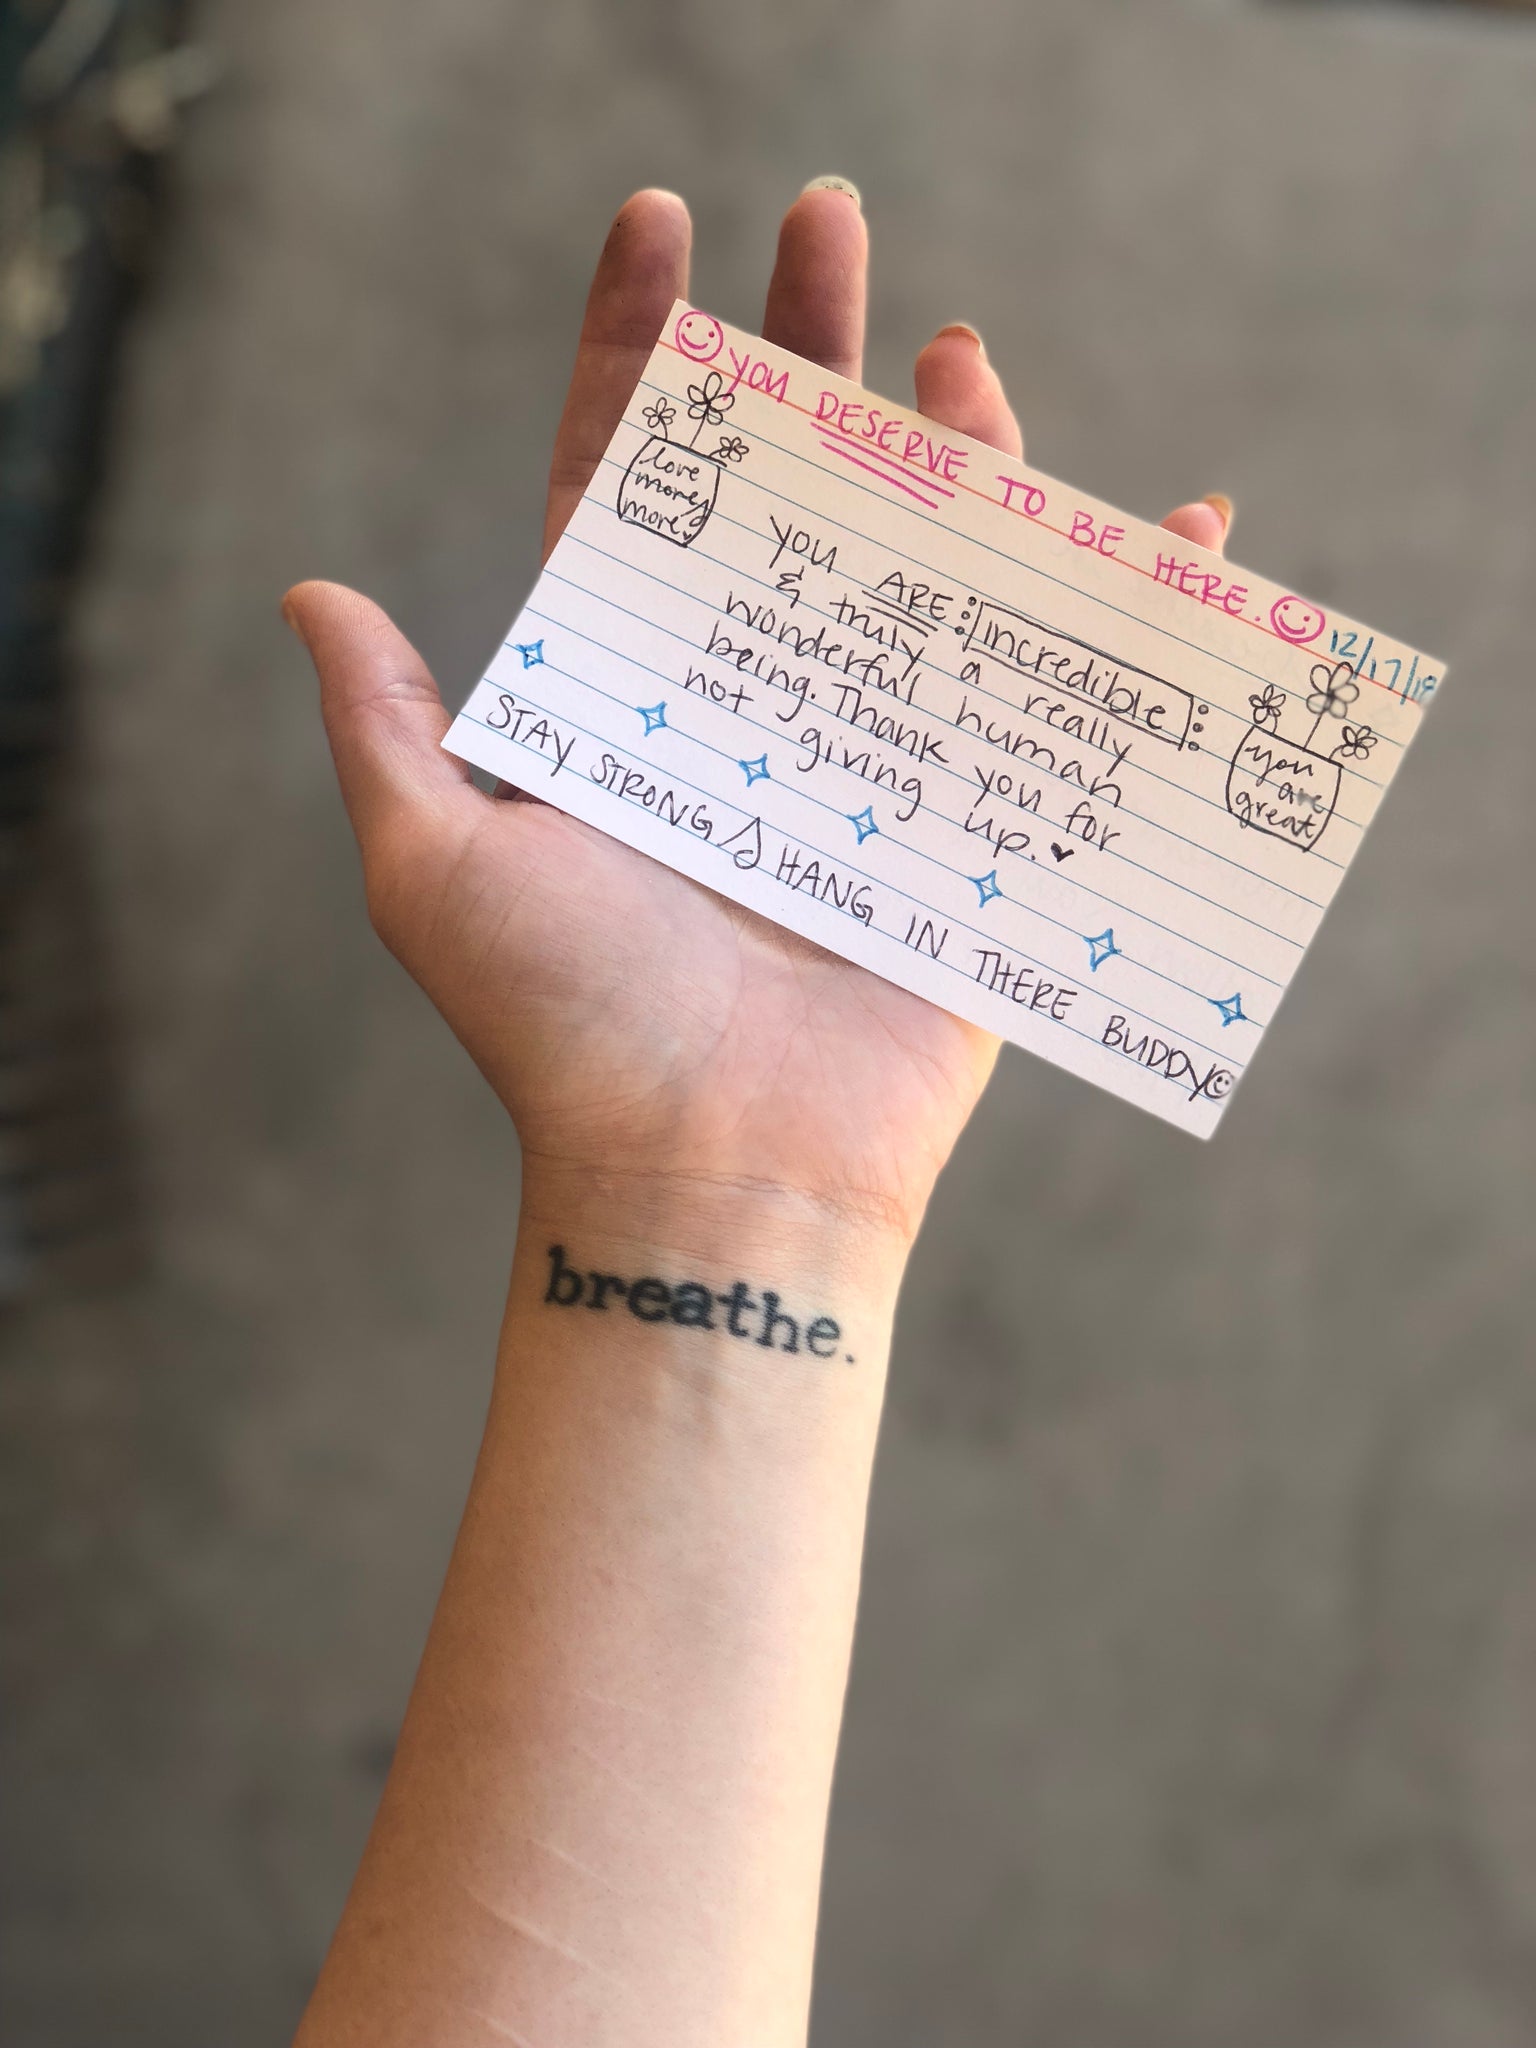 YOU DESERVE TO BE HERE.
12/17/18
love
more &
more
YOU ARE: incredible:
& truly a really
wonderful human
being. Thank you for
not giving up.
you
are
great
STAY STRONG & HANG IN THERE BUDDY
breathe.